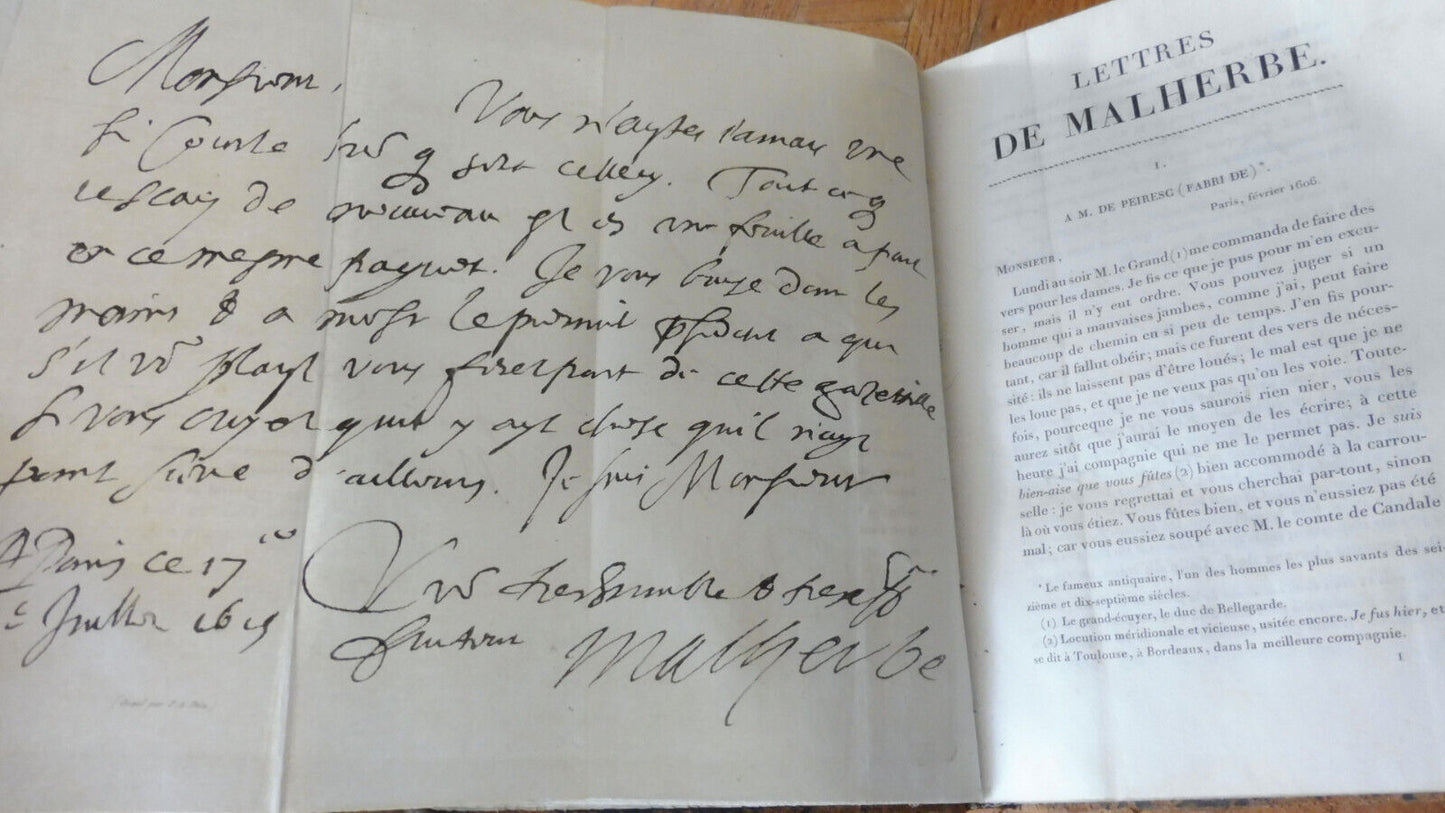 Monsieur,
Vous n'aystes iamais une
si courte que soit cellecy. Tout ce q
ie scay de nouveau est en une feuille a part
en ce mesme paquet. Je vous bayse donc les
mains & a mons.r le premier president a qui
s'il vo9 playst vous ferez part de cette gazettille
si vous croyez quil y ayt chose quil n'ayt
point sceue d'ailleurs. Je suis Monsieur
A Paris ce 17
Juillet 1615
Vre treshumble & tres
serviteur Malherbe
LETTRES
DE MALHERBE.
I.
A M. DE PEIRESC (FABRI DE)*.
Paris, février 1606.
MONSIEUR,
Lundi au soir M. le Grand (1) me commanda de faire des
vers pour les dames. Je fis ce que je pus pour m'en excu-
ser, mais il n'y eut ordre. Vous pouvez juger si un
homme qui a mauvaises jambes, comme j'ai, peut faire
beaucoup de chemin en si peu de temps. J'en fis pour-
tant, car il fallut obéir; mais ce furent des vers de néces-
sité: ils ne laissent pas d'être loués; le mal est que je ne
les loue pas, et que je ne veux pas qu'on les voie. Toute-
fois, pourceque je ne vous saurois rien nier, vous les
aurez sitôt que j'aurai le moyen de les écrire; à cette
heure j'ai compagnie qui ne me le permet pas. Je suis
bien-aise que vous fûtes (2) bien accommodé à la carrou-
selle: je vous regrettai et vous cherchai par-tout, sinon
là où vous étiez. Vous fûtes bien, et vous n'eussiez pas été
mal; car vous eussiez soupé avec M. le comte de Candale
* Le fameux antiquaire, l'un des hommes les plus savants des sei-
zième et dix-septième siècles.
(1) Le grand-écuyer, le duc de Bellegarde.
(2) Locution méridionale et vicieuse, usitée encore. Je fus hier, et
se dit à Toulouse, à Bordeaux, dans la meilleure compagnie.
1